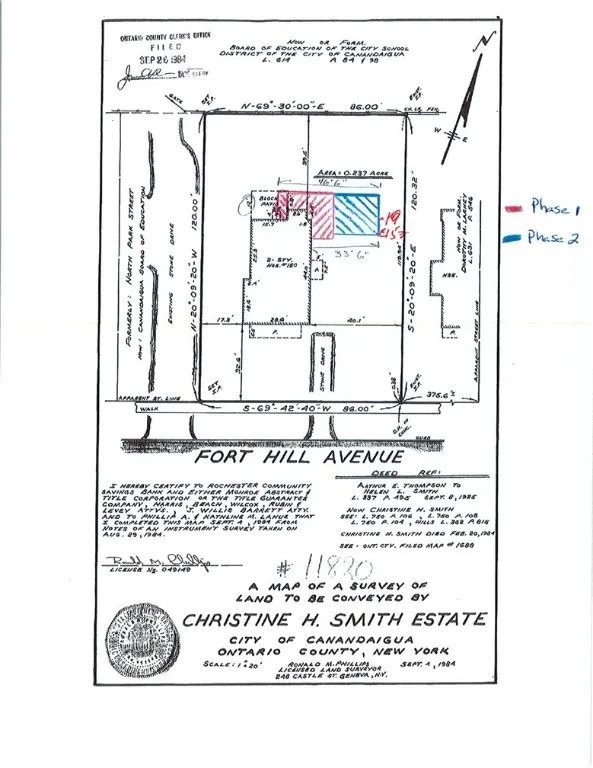 ONTARIO COUNTY CLERK'S OFFICE
FILED
SEP 26 1984
NOW OR FORM.
BOARD OF EDUCATION OF THE CITY SCHOOL
DISTRICT OF THE CITY OF CANANDAIGUA
L. 614 P. 84 & 98
N
W E
GATE
N-69°-30'-00"-E 86.00'
AREA = 0.237 ACRE
46'6"
BLOCK
PATIO
33'6"
Phase 1
Phase 2
FORMERLY: NORTH PARK STREET
NOW: CANANDAIGUA BOARD OF EDUCATION
EXISTING STONE DRIVE
N-20°-09'-20"-W 120.00'
S-20°-09'-20"-E
120.32'
2-STY.
HSE. #120
HSE.
P.
17.3
28.8
40.1
32.6'
STONE DRIVE
APPARENT STREET LINE
375.6'±
APPARENT ST. LINE
WALK
S-69°-42'-40"-W 86.00'
FORT HILL AVENUE
I HEREBY CERTIFY TO ROCHESTER COMMUNITY
SAVINGS BANK AND EITHER MONROE ABSTRACT &
TITLE CORPORATION OR THE TITLE GUARANTEE
COMPANY, HARRIS, BEACH, WILCOX, RUBIN &
LEVEY ATTYS., J. WILLIS BARRETT ATTY.
AND TO PHILLIP A. & KATHLINE M. LAHUE THAT
I COMPLETED THIS MAP SEPT. 4, 1984 FROM
NOTES OF AN INSTRUMENT SURVEY TAKEN ON
AUG. 29, 1984.
LICENSE NO. 049149
DEED REF:
ARTHUR E. THOMPSON TO
HELEN L. SMITH
L. 337 P. 425 SEPT. 2, 1925
NOW CHRISTINE H. SMITH
SEE: L. 750 P. 106, L. 750 P. 108
L. 750 P. 104, WILLS L. 362 P. 815
CHRISTINE H. SMITH DIED FEB. 20, 1984
SEE: ONT. CTY. FILED MAP # 1688
# 11820
A MAP OF A SURVEY OF
LAND TO BE CONVEYED BY
CHRISTINE H. SMITH ESTATE
CITY OF CANANDAIGUA
ONTARIO COUNTY, NEW YORK
SCALE: 1"=20'
RONALD M. PHILLIPS
LICENSED LAND SURVEYOR
248 CASTLE ST. GENEVA, N.Y.
SEPT. 4, 1984